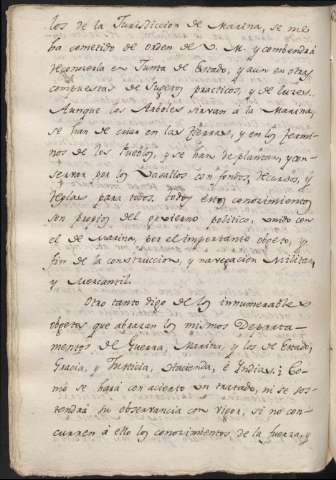 les de la Jurisdiccion de Marina, se me
ha cometido de orden de S. M. y combendrá
ver en Junta de Estado, y aun en otras
compuestas de Sugetos practicos, y de luces.
Aunque los Arboles sirvan a la Marina,
se han de criar en las tierras, y en los termi-
nos de los Pueblos, y se han de plantar, y con-
servar por los Vasallos con fondos, decursos, y
reglas para todos, todos estos conocimientos
son propios del govierno politico, unido con
el de Marina, por el importante objeto, y
fin de la construccion, y navegacion Militar,
y Mercantil.
Otro tanto digo de los innumerables
objetos que abrazan los mismos Departa-
mentos de Guerra, Marina, y los de Estado,
Gracia, y Justicia, Hacienda, é Indias: ¿Co-
mo se hará con acierto un tratado, ni se sos-
tendrá su observancia con vigor, si no con-
curren á ello los conocimientos de la fuerza, y